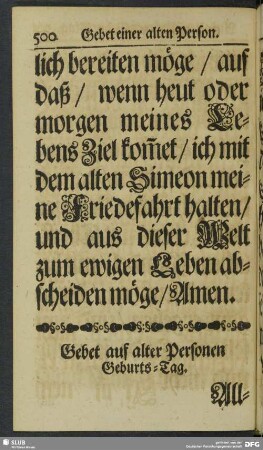 500 Gebet einer alten Person.
lich bereiten möge / auf
daß / wenn heut oder
morgen meines Le-
bens Ziel kom̃et / ich mit
dem alten Simeon mei-
ne Friedefahrt halten /
und aus dieser Welt
zum ewigen Leben ab-
scheiden möge / Amen.
Gebet auf alter Personen
Geburts-Tag.
All-
SLUB
DFG